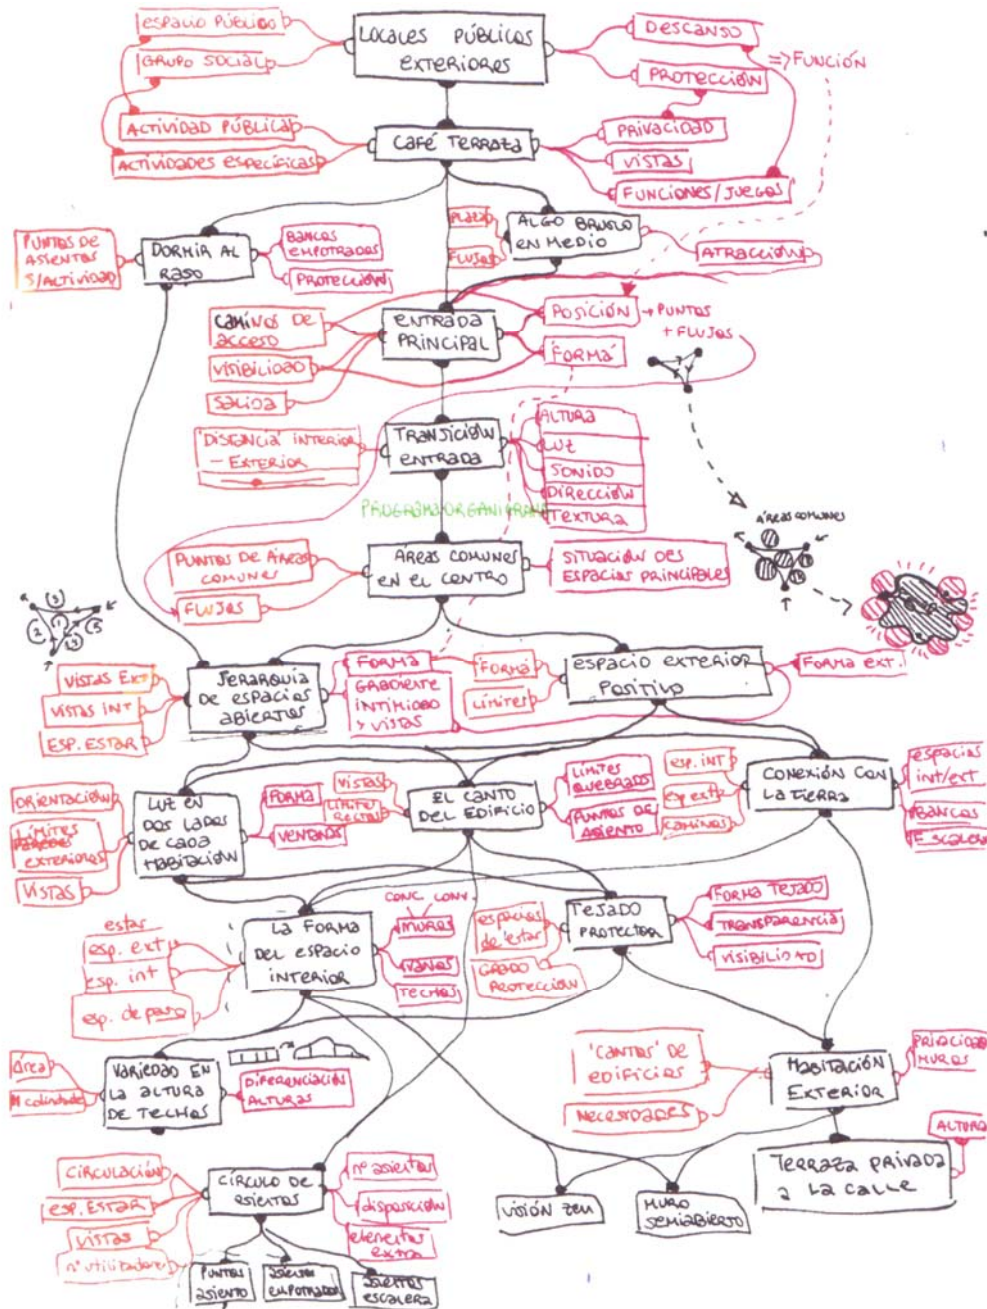 ESPACIO PÚBLICO
GRUPO SOCIAL
LOCALES PÚBLICOS
EXTERIORES
DESCANSO
PROTECCIÓN
=> FUNCIÓN
ACTIVIDAD PÚBLICA
ACTIVIDADES ESPECÍFICAS
CAFÉ TERRAZA
PRIVACIDAD
VISTAS
FUNCIONES/JUEGOS
PUNTOS DE
ASIENTOS
S/ACTIVIDAD
DORMIR AL
RASO
BANCOS
EMPOTRADOS
PROTECCIÓN
PLAZA
FLUJOS
ALGO BRUSCO
EN MEDIO
ATRACCIÓN
CAMINOS DE
ACCESO
VISIBILIDAD
SALIDA
ENTRADA
PRINCIPAL
POSICIÓN → PUNTOS
+ FLUJOS
'FORMA'
'DISTANCIA' INTERIOR
- EXTERIOR
TRANSICIÓN
ENTRADA
ALTURA
LUZ
SONIDO
DIRECCIÓN
TEXTURA
PROGRAMA ORGANIGRAMA
PUNTOS DE ÁREAS
COMUNES
FLUJOS
ÁREAS COMUNES
EN EL CENTRO
SITUACIÓN DES
ESPACIAS PRINCIPALES
ÁREAS COMUNES
(3)
(2)
(1)
(4)
(5)
VISTAS EXT
VISTAS INT
ESP. ESTAR
JERARQUÍA
DE ESPACIOS
ABIERTOS
FORMA
GRADIENTE
INTIMIDAD
Y VISTAS
FORMA
LÍMITES
ESPACIO EXTERIOR
POSITIVO
FORMA EXT.
ORIENTACIÓN
LÍMITES
PAREDES
EXTERIORES
VISTAS
LUZ EN
DOS LADOS
DE CADA
HABITACIÓN
FORMA
VENTANAS
VISTAS
LÍMITES
RECTOS
EL CANTO
DEL EDIFICIO
LÍMITES
QUEBRADOS
PUNTOS DE
ASIENTO
esp. INT
esp ext
CAMINOS
CONEXIÓN CON
LA TIERRA
espacios
int/ext
BANCOS
ESCALERA
estar
esp. ext
esp. int
esp. de paso
LA FORMA
DEL ESPACIO
INTERIOR
CONC. CONV.
MUROS
VANOS
TECHOS
espacios
de 'estar'
GRADO
PROTECCIÓN
TEJADO
PROTECTOR
FORMA TEJADO
TRANSPARENCIA
VISIBILIDAD
Área
VARIEDAD EN
LA ALTURA
DE TECHOS
DIFERENCIACIÓN
ALTURAS
'CANTOS' DE
EDIFICIOS
NECESIDADES
HABITACIÓN
EXTERIOR
PRIVACIDAD
MUROS
ALTURA
TERRAZA PRIVADA
A LA CALLE
CIRCULACIÓN
esp. ESTAR
VISTAS
nº utilizadores
CÍRCULO DE
ASIENTOS
nº asientos
disposición
elementos
extra
VISIÓN ZEN
MURO
SEMIABIERTO
PUNTOS
asiento
asientos
EMPOTRADOS
asientos
escalera